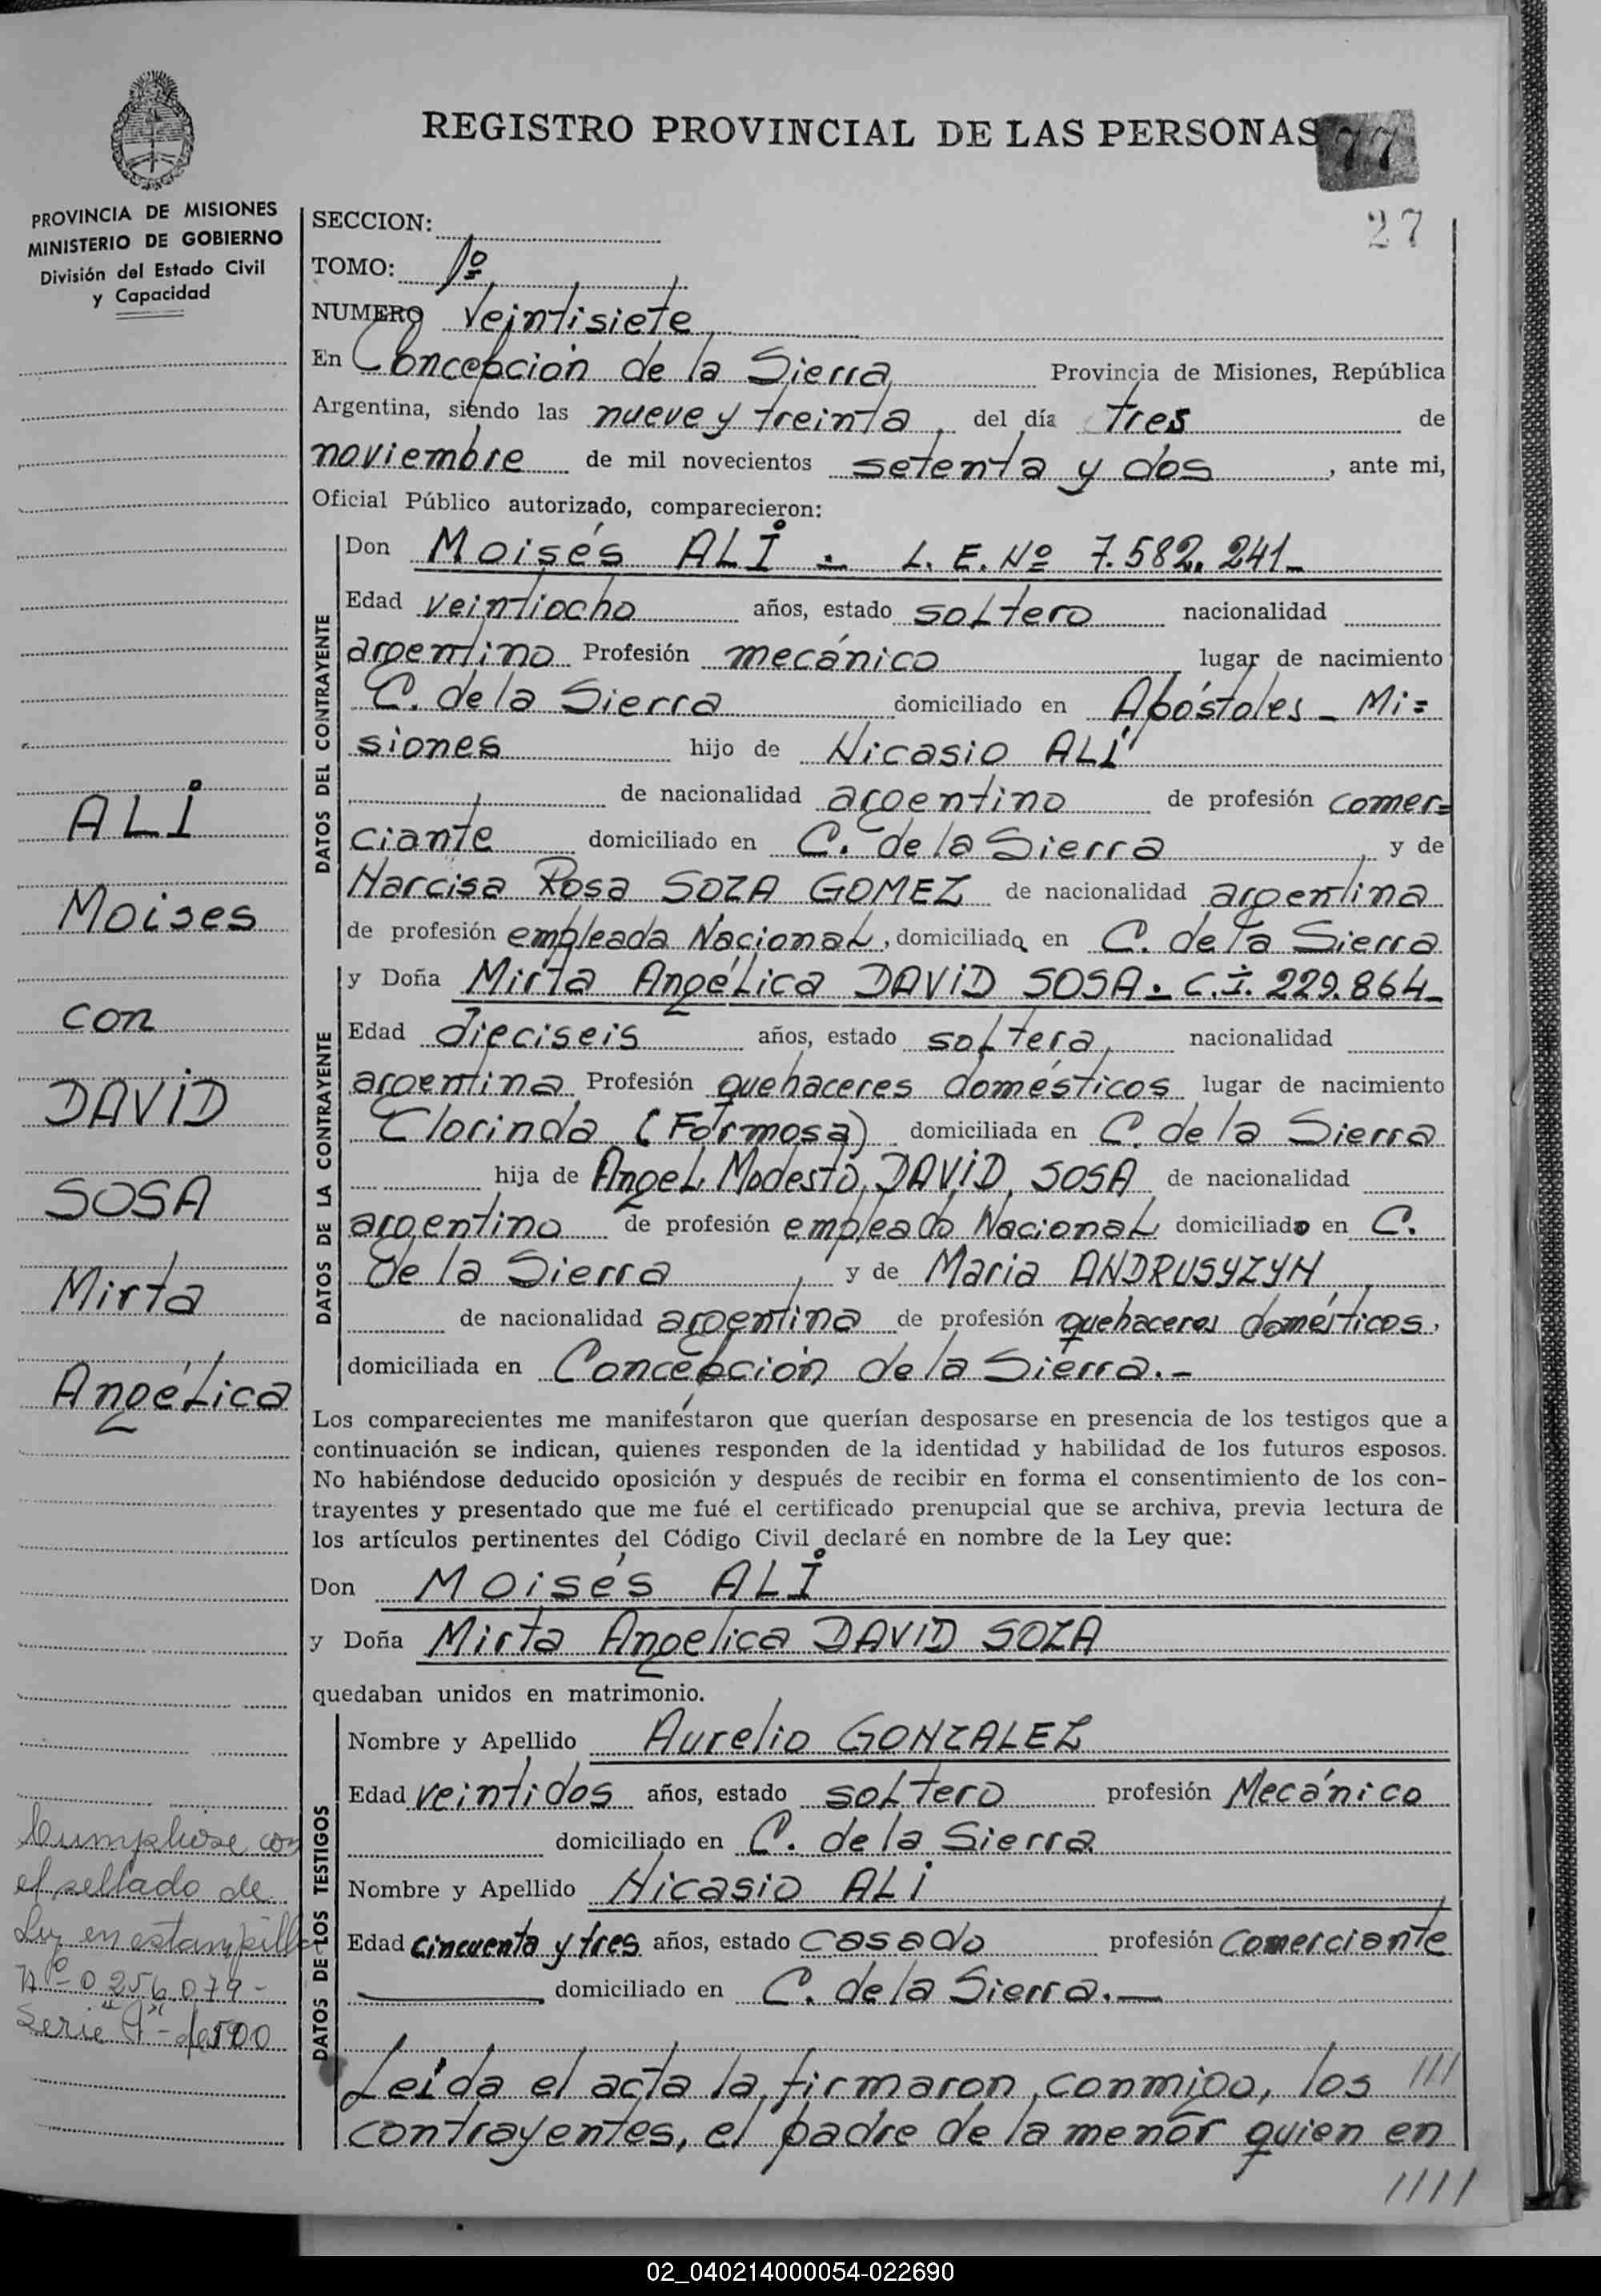 REGISTRO PROVINCIAL DE LAS PERSONAS
77
27
PROVINCIA DE MISIONES
MINISTERIO DE GOBIERNO
División del Estado Civil
y Capacidad
SECCION:
TOMO: 1º
NUMERO Veintisiete
En Concepción de la Sierra Provincia de Misiones, República
Argentina, siendo las nueve y treinta, del día tres de
noviembre de mil novecientos setenta y dos, ante mi,
Oficial Público autorizado, comparecieron:
DATOS DEL CONTRAYENTE
Don Moisés ALI.- L. E. Nº 7.582.241-
Edad veintiocho años, estado soltero nacionalidad
argentino Profesión mecánico lugar de nacimiento
C. de la Sierra domiciliado en Apóstoles - Mi=
siones hijo de Nicasio ALI
de nacionalidad argentino de profesión comer=
ciante domiciliado en C. de la Sierra, y de
Narcisa Rosa SOZA GOMEZ de nacionalidad argentina
de profesión empleada Nacional, domiciliada en C. de la Sierra
DATOS DE LA CONTRAYENTE
y Doña Mirta Angélica DAVID SOSA.- C.I. 229.864-
Edad dieciseis años, estado soltera, nacionalidad
argentina Profesión quehaceres domésticos lugar de nacimiento
Clorinda (Formosa) domiciliada en C. de la Sierra
hija de Angel Modesto DAVID SOSA de nacionalidad
argentino de profesión empleado Nacional domiciliado en C.
de la Sierra, y de Maria ANDRUSYZYN,
de nacionalidad argentina de profesión quehaceres domésticos,
domiciliada en Concepción de la Sierra.-
Los comparecientes me manifestaron que querían desposarse en presencia de los testigos que a
continuación se indican, quienes responden de la identidad y habilidad de los futuros esposos.
No habiéndose deducido oposición y después de recibir en forma el consentimiento de los con-
trayentes y presentado que me fué el certificado prenupcial que se archiva, previa lectura de
los artículos pertinentes del Código Civil declaré en nombre de la Ley que:
Don Moisés ALI
y Doña Mirta Angelica DAVID SOZA
quedaban unidos en matrimonio.
DATOS DE LOS TESTIGOS
Nombre y Apellido Aurelio GONZALEZ
Edad veintidos años, estado soltero profesión Mecánico
domiciliado en C. de la Sierra
Nombre y Apellido Nicasio ALI
Edad cincuenta y tres años, estado casado profesión comerciante
domiciliado en C. de la Sierra.-
Leida el acta la firmaron conmigo, los ///
contrayentes, el padre de la menor quien en
////
ALI
Moises
con
DAVID
SOSA
Mirta
Angélica
Cumpliose con
el sellado de
Ley en estampilla
Nº 0256079-
Serie "A" - de 500
02_040214000054-022690